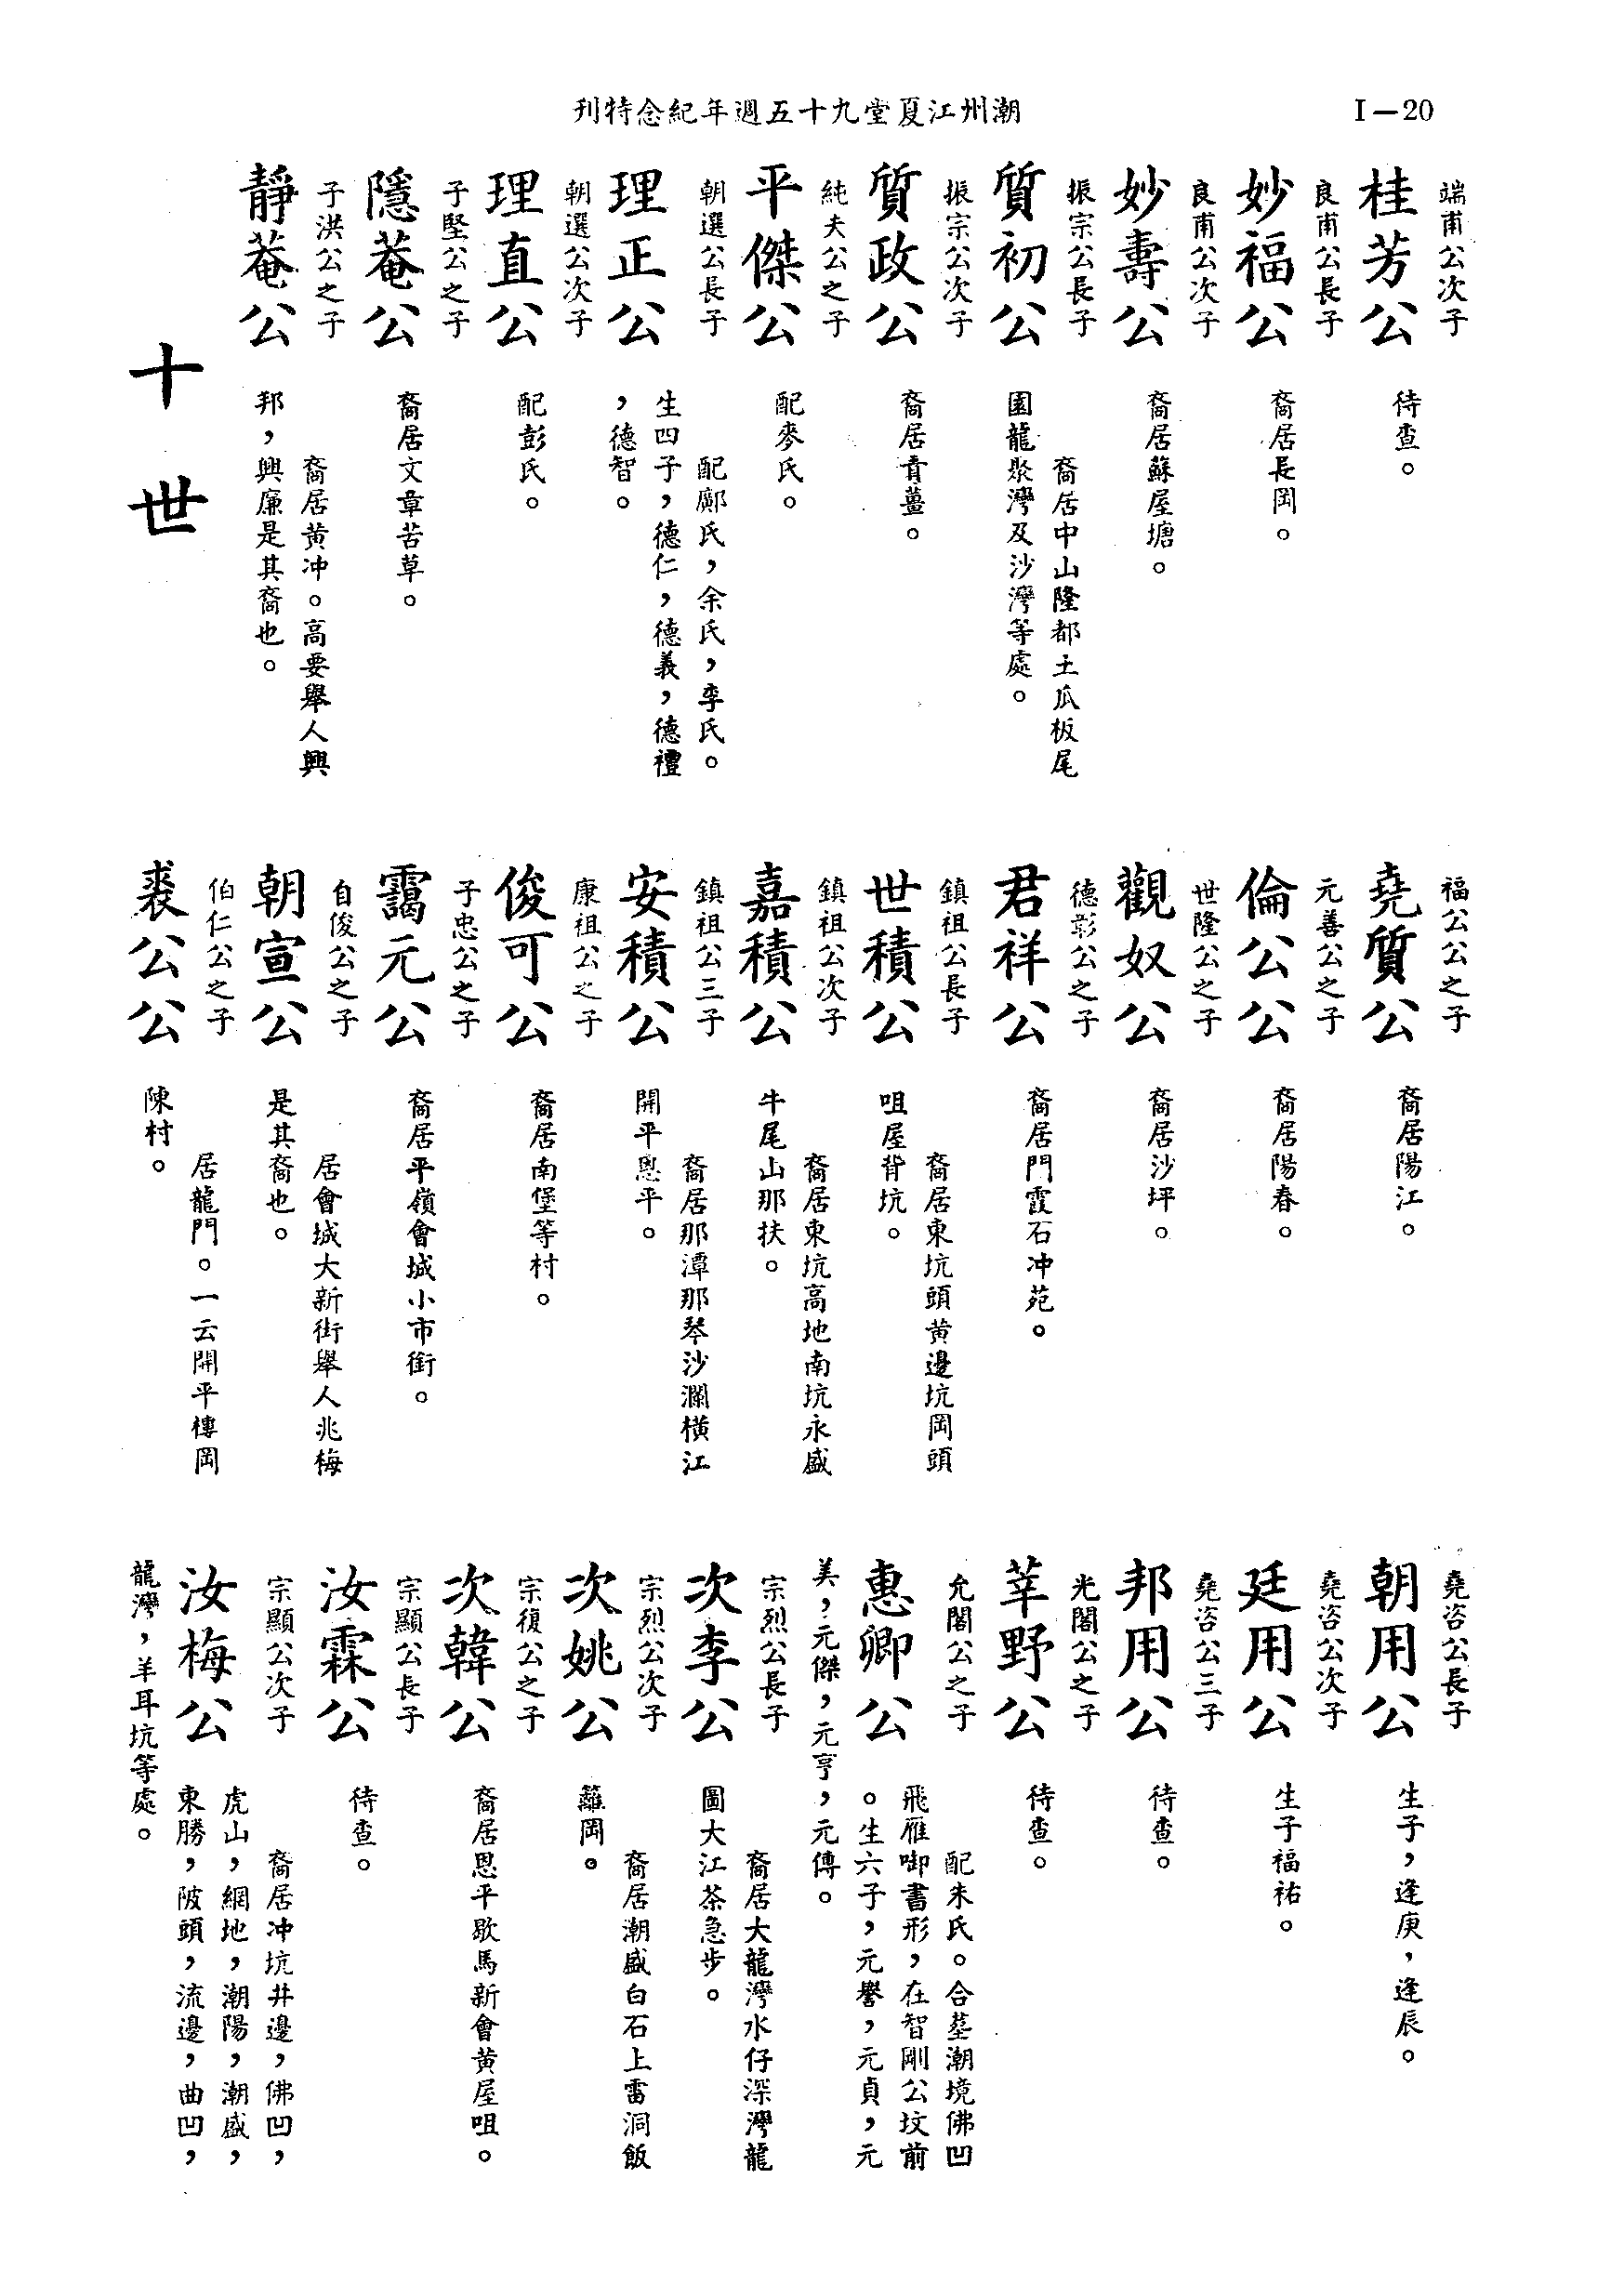 潮州江夏堂九十五週年紀念特刊
I—20
端甫公次子
桂芳公
待查。
良甫公長子
妙福公
裔居長岡。
良甫公次子
妙壽公
裔居蘇屋塘。
振宗公長子
質初公
裔居中山隆都土瓜板尾
園龍聚灣及沙灣等處。
振宗公次子
質政公
裔居青薑。
純夫公之子
平傑公
配麥氏。
朝選公長子
理正公
配鄺氏,余氏,李氏。
生四子,德仁,德義,德禮
,德智。
朝選公次子
理直公
配彭氏。
子堅公之子
隱菴公
裔居文章苦草。
子洪公之子
靜菴公
裔居黃冲。高要舉人興
邦,興廉是其裔也。
十世
福公公之子
堯質公
裔居陽江。
元善公之子
倫公公
裔居陽春。
世隆公之子
觀奴公
裔居沙坪。
德彰公之子
君祥公
裔居門霞石冲苑。
鎮祖公長子
世積公
裔居東坑頭黃邊坑岡頭
咀屋背坑。
鎮祖公次子
嘉積公
裔居東坑高地南坑永盛
牛尾山那扶。
鎮祖公三子
安積公
裔居那潭那琴沙瀾橫江
開平恩平。
康祖公之子
俊可公
裔居南堡等村。
子忠公之子
靄元公
裔居平嶺會城小市街。
自俊公之子
朝宣公
居會城大新街舉人兆梅
是其裔也。
伯仁公之子
裘公公
居龍門。一云開平樓岡
陳村。
堯咨公長子
朝用公
生子,逢庚,逢辰。
堯咨公次子
廷用公
生子福祐。
堯咨公三子
邦用公
待查。
光閣公之子
莘野公
待查。
允閣公之子
惠卿公
配朱氏。合墓潮境佛凹
飛雁啣書形,在智剛公坟前
。生六子,元譽,元貞,元
美,元傑,元亨,元傳。
宗烈公長子
次李公
裔居大龍灣水仔深灣龍
圖大江茶急步。
宗烈公次子
次姚公
裔居潮盛白石上雷洞飯
籮岡。
宗復公之子
次韓公
裔居恩平歇馬新會黃屋咀。
宗顯公長子
汝霖公
待查。
宗顯公次子
汝梅公
裔居冲坑井邊,佛凹,
虎山,網地,潮陽,潮盛,
東勝,陂頭,流邊,曲凹,
龍灣,羊耳坑等處。